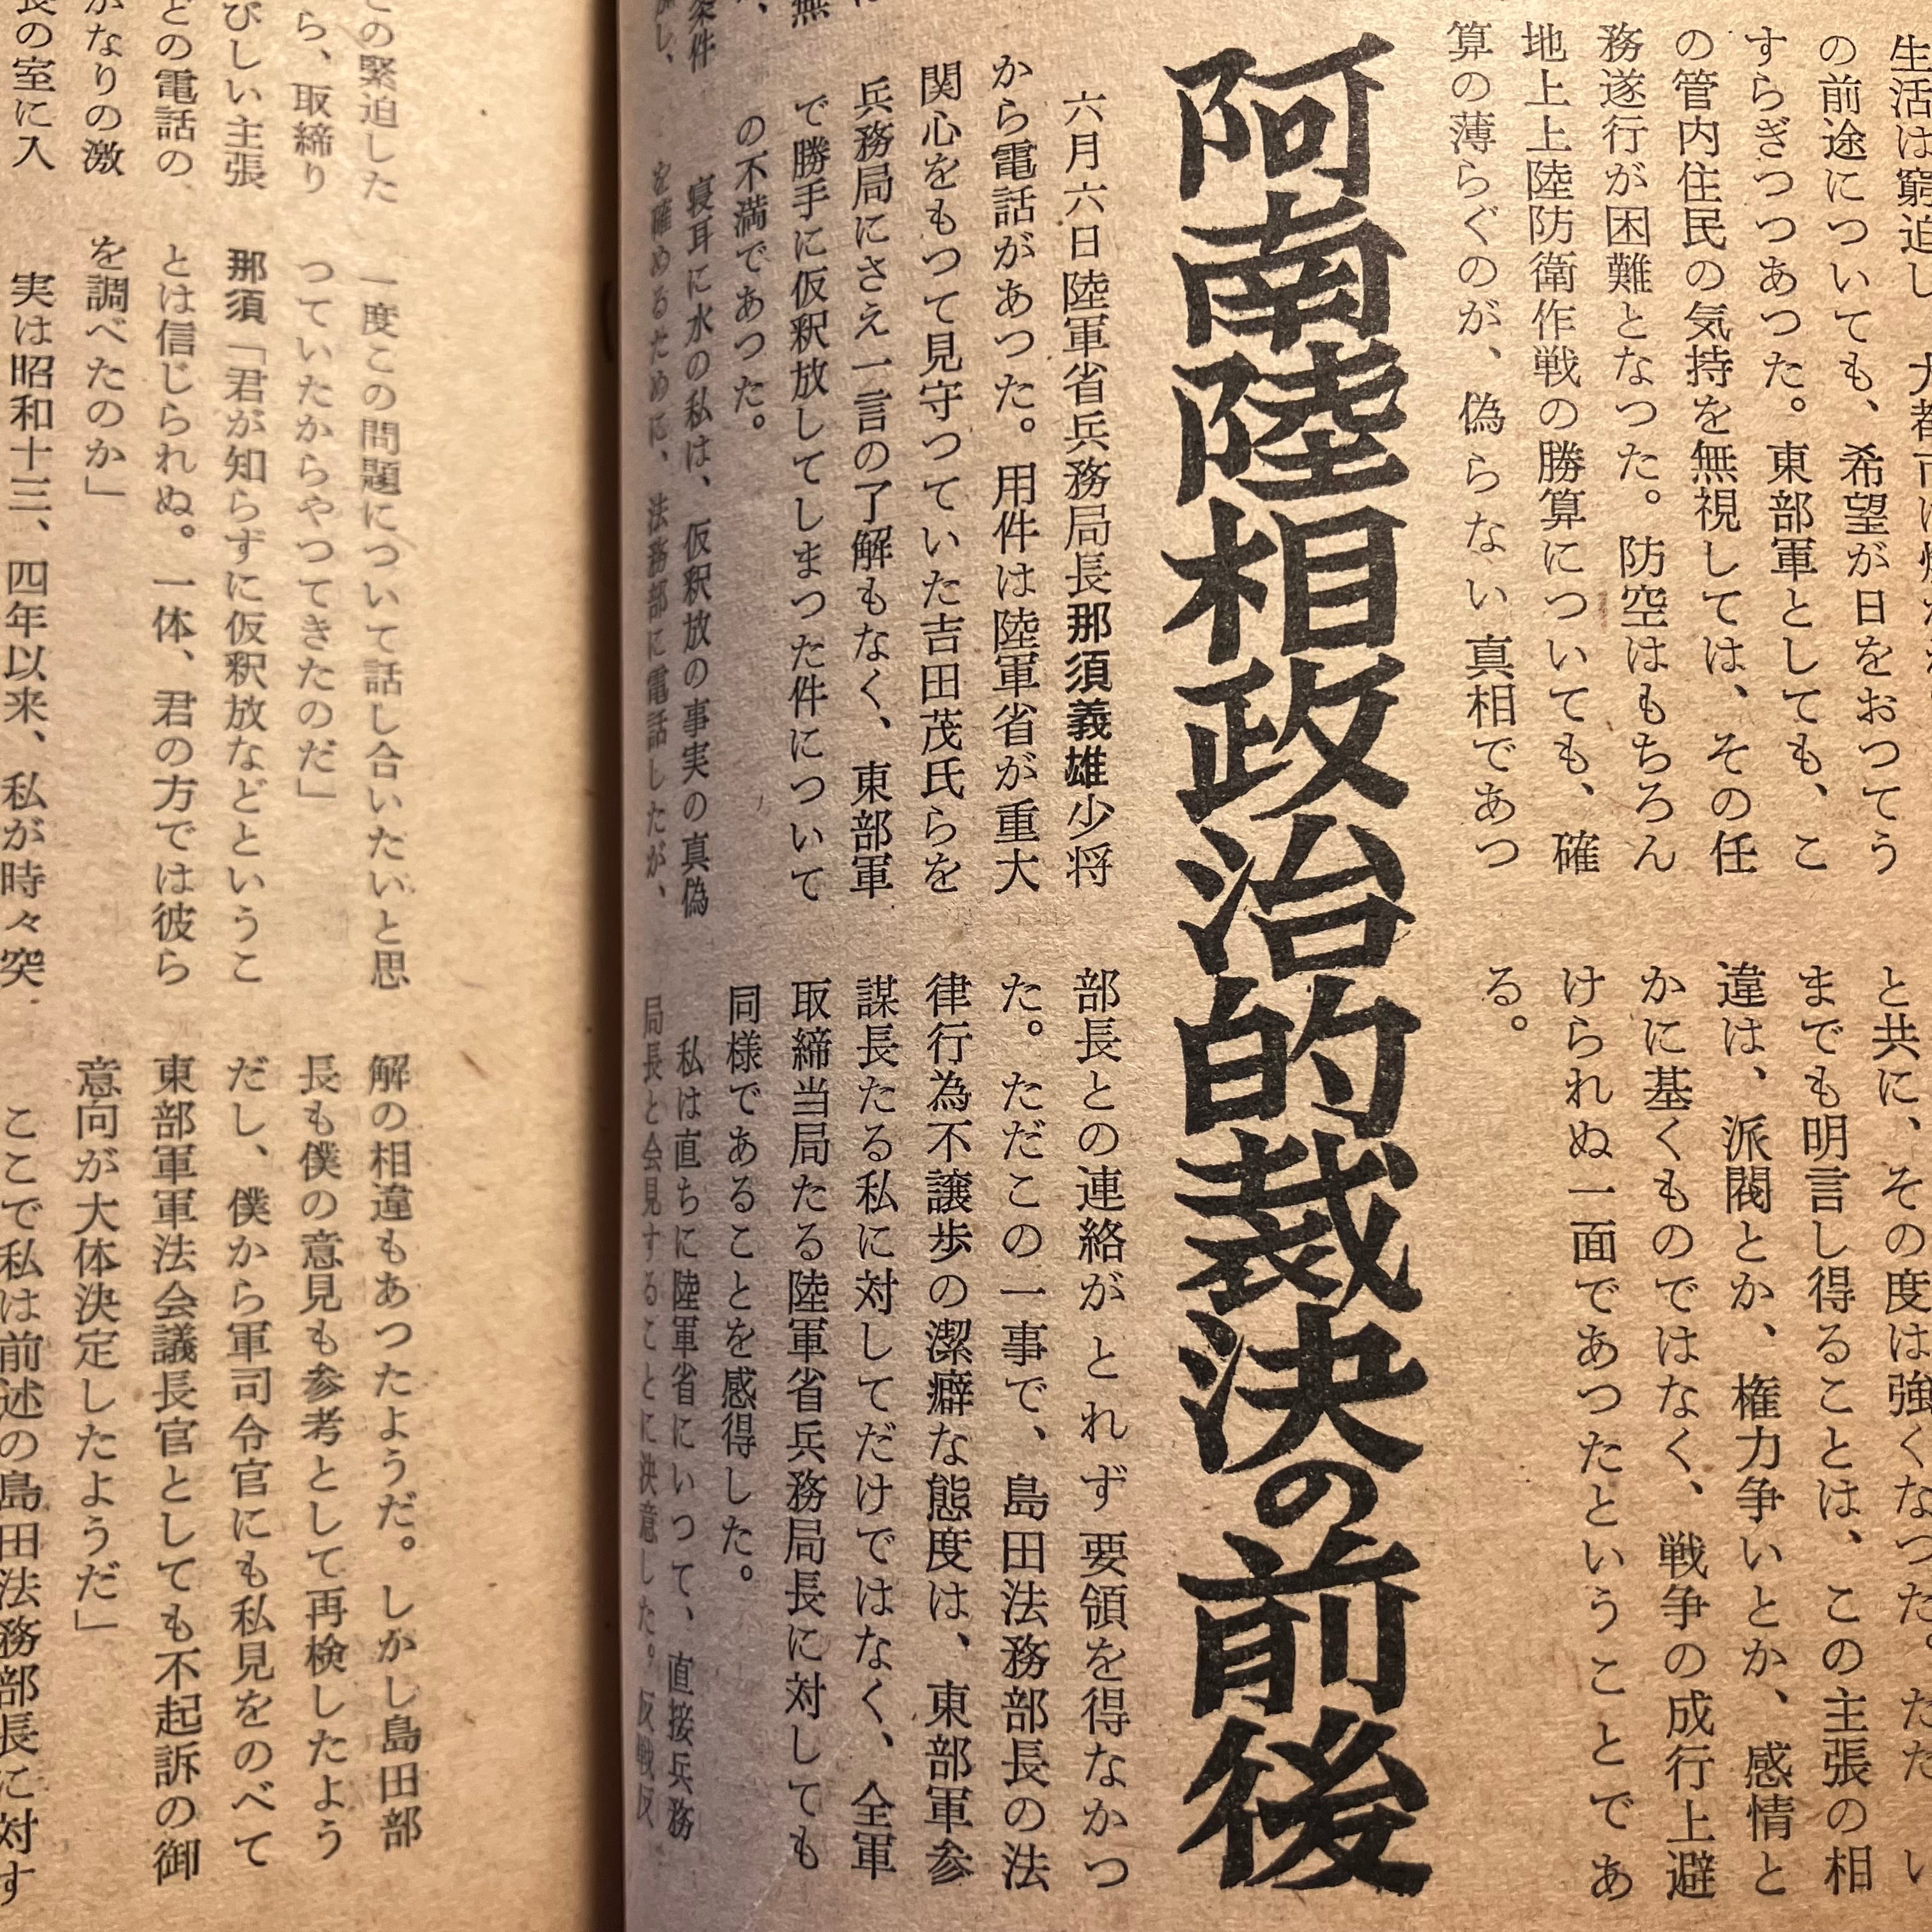 の前途についても、希望が日をおつてう
すらぎつつあつた。東部軍としても、こ
の管内住民の気持を無視しては、その任
務遂行が困難となつた。防空はもちろん
地上上陸防衛作戦の勝算についても、確
算の薄らぐのが、偽らない真相であつ
と共に、その度は強くなつた。ただ
までも明言し得ることは、この主張の相
違は、派閥とか、権力争いとか、感情と
かに基くものではなく、戦争の成行上避
けられぬ一面であつたということであ
る。
阿南陸相政治的裁決の前後
六月六日陸軍省兵務局長那須義雄少将
から電話があつた。用件は陸軍省が重大
関心をもつて見守つていた吉田茂氏らを
兵務局にさえ一言の了解もなく、東部軍
で勝手に仮釈放してしまつた件について
の不満であつた。
寝耳に水の私は、仮釈放の事実の真偽
を確めるために、法務部に電話したが、
部長との連絡がとれず要領を得なかつ
た。ただこの一事で、島田法務部長の法
律行為不譲歩の潔癖な態度は、東部軍参
謀長たる私に対してだけではなく、全軍
取締当局たる陸軍省兵務局長に対しても
同様であることを感得した。
私は直ちに陸軍省にいつて、直接兵務
局長と会見することに決意した。反戦反
この緊迫した
ら、取締り
びしい主張
どの電話の
かなりの激
長の室に入
一度この問題について話し合いたいと思
つていたからやつてきたのだ」
那須「君が知らずに仮釈放などというこ
とは信じられぬ。一体、君の方では彼ら
を調べたのか」
実は昭和十三、四年以来、私が時々突
解の相違もあつたようだ。しかし島田部
長も僕の意見も参考として再検したよう
だし、僕から軍司令官にも私見をのべて
東部軍軍法会議長官としても不起訴の御
意向が大体決定したようだ」
ここで私は前述の島田法務部長に対す